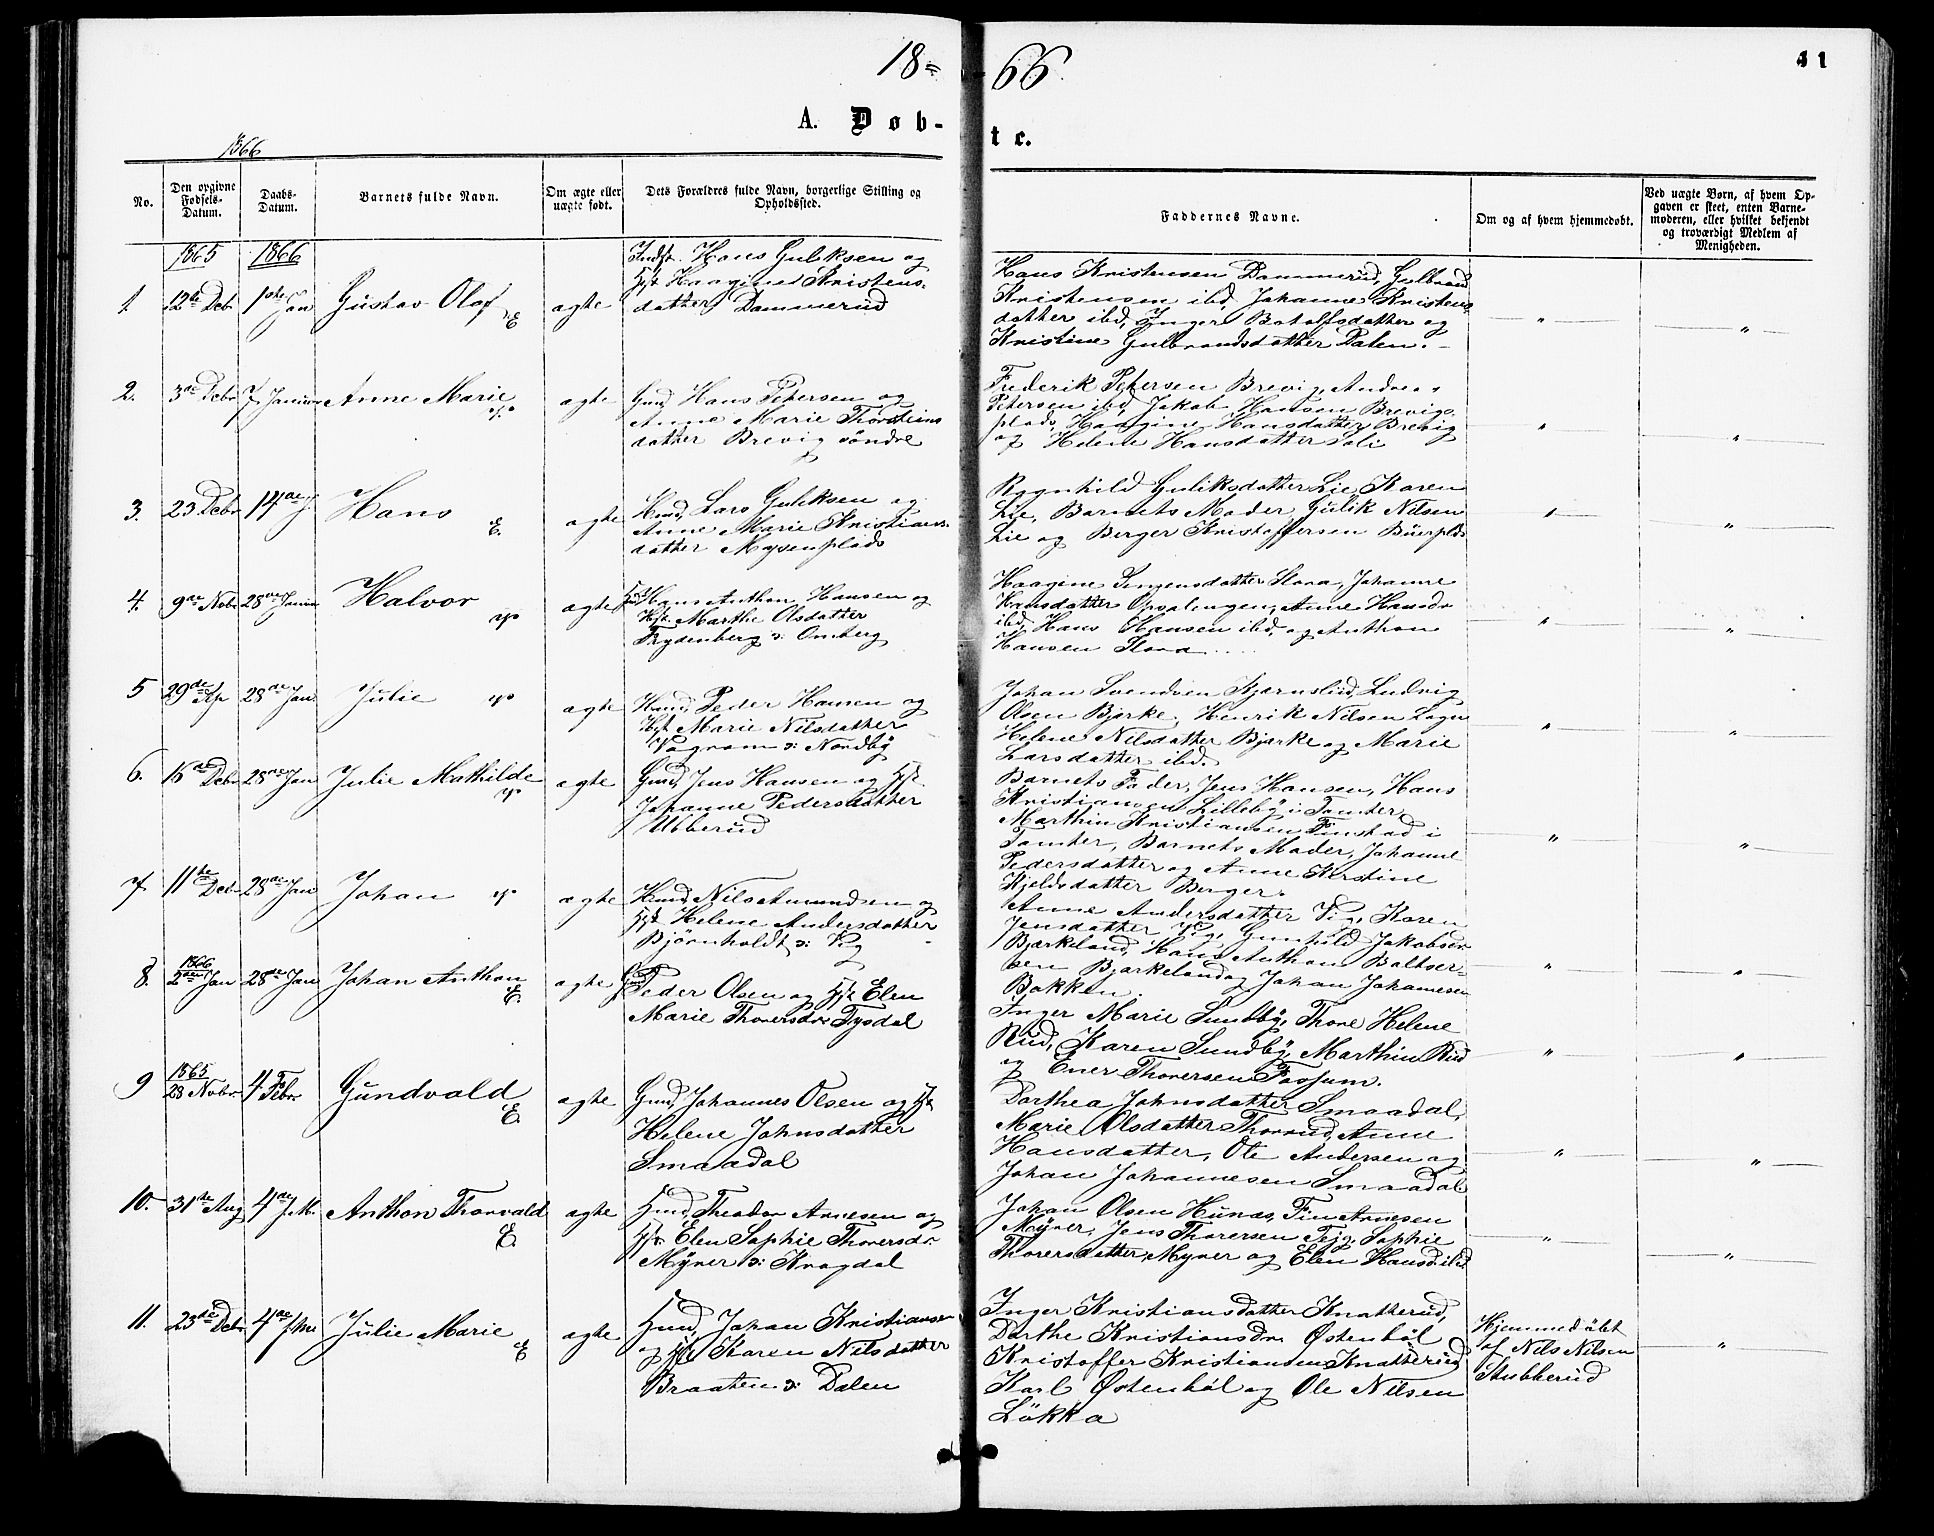 18=66
41
A. Døb-te.
1866
No.
Den opgivne Fødsels-Datum.
Daabs-Datum.
Barnets fulde Navn.
Om ægte eller uægte født.
Dets Forældres fulde Navn, borgerlige Stilling og Opholdssted.
Faddernes Navne.
Om og af hvem hjemmedøbt.
Ved uægte Børn, af hvem Op-
gaven er skeet, enten Barne-
moderen, eller hvilket bekjendt
og troværdigt Medlem af
Menigheden.
1865
1866
1.
12te Debr
1ste Jan
Gustav Olaf
E
ægte
Indst. Hans Guliksen og
Hst. Haagine Kristens-
datter Dammerud
Hans Kristensen Dammerud, Gulbrand
Kristensen ibd, Johanne Kristens-
datter ibd, Inger Botolfsdatter og
Kristine Gulbrandsdatter Dalen.
"
"
2.
3de Debr
7 Januar
Anne Marie
ægte
Gmd Hans Petersen og
Anne Marie Thorsteins
datter Brevig söndre
Frederik Petersen Brevig, Andreas
Petersen ibd, Jakob Hansen Brevigs-
plads, Haagine Hansdatter Brevig
og Helene Hansdatter Soli
"
"
3.
23 Debr
14de J.
Hans
E.
ægte
Hmd, Lars Guliksen og
Anne Marie Kristians-
datter Mysenplads
Ragnhild Guliksdatter Lie Karen
Lie, Barnets Moder, Gulik Nilsen
Lie og Berger Kristoffersen Büerplds
"
"
4.
9de Nobr
28de Januar
Halvor
ægte
Hans Anthon Hansen og
Hst. Marthe Olsdatter
Frydenberg s: Omberg
Haagine Jensdatter Slora, Johanne
Hansdatter Opsalengen, Anne Hansdr
ibd, Hans Hansen ibd, og Anthon
Hansen Slora
"
"
5
29de Sp
28de Jan.
Julie
ægte
Hmd, Peder Hansen og
Hst Marie Nilsdatter
Vagram s: Nordby
Johan Svendsen Kjærnslüd, Ludvig
Olsen Bjerke, Henrik Nilsen
Helene Nilsdatter Bjerke og Marie
Larsdatter ibd.
"
"
6.
15de Debr
28de Jan
Julie Mathilde
ægte
Gmd, Jens Hansen og Hst.
Johanne Pedersdatter
Ubberud
Barnets Fader, Jens Hansen, Hans
Kristiansen Lilleby i Tomter,
Marthin Kristiansen Finstad i
Tomter, Barnets Moder, Johanne
Pedersdatter og Anne Kerstine
Kjeldsdatter Berger.
"
"
7.
11te Debr
28de Jan
Johan
ægte
Hmd, Nils Amundsen og
Hst. Helene Andersdatter
Bjørnholdt s: Vig
Anne Andersdatter Vig, Karen
Jensdatter Vig, Gunhild Jakobsen
Bjerkeland, Hans Anthon Baltser-
sen Bjerkeland og Johan Johannesen
Bakken.
"
"
8.
1866
2den Jan
28de Jan
Johan Anthon
E.
ægte
Peder Olsen og Hst Elen
Marie Thorersdr Tysdal
Inger Marie Sundby, Thore Helene
Rüd, Karen Sundby, Marthin Rüd
og Ener Thorersen Fossum.
"
"
9
1865
28 Nobr.
4 Febr
Gundvald
E.
ægte
Gmd, Johannes Olsen og Hst
Helene Johnsdatter
Smaadal
Dorthea Johnsdatter Smaadal,
Marie Olsdatter Thorrud, Anne
Hansdatter, Ole Andersen og
Johan Johannesen Smaadal
"
"
10.
31te Aug
4de J.M.
Anthon Thorvald
E.
ægte
Hmd Theodor Arnesen og
Hst. Elen Sophie Thorersdr.
Myrer s: Krogdal
Johan Olsen Hunæs, Fin Arnesen
Myrer, Jens Thorersen Teig, Sophie
Thorersdatter Myrer og Elen Hansd ibd
"
"
11.
23de Debr
4de
Julie Marie
E
ægte
Hmd, Johan Kristiansen
og Hst Karen Nilsdatter
Braaten s: Dalen
Inger Kristiansdatter Knatterud,
Dorthe Kristiansdr Østenböl
Kristoffer Kristiansen Knatterud,
Karl Østenböl og Ole Nilsen
Lökka
Hjemmedöbt
af Nils Nilsen
Stubberud
"